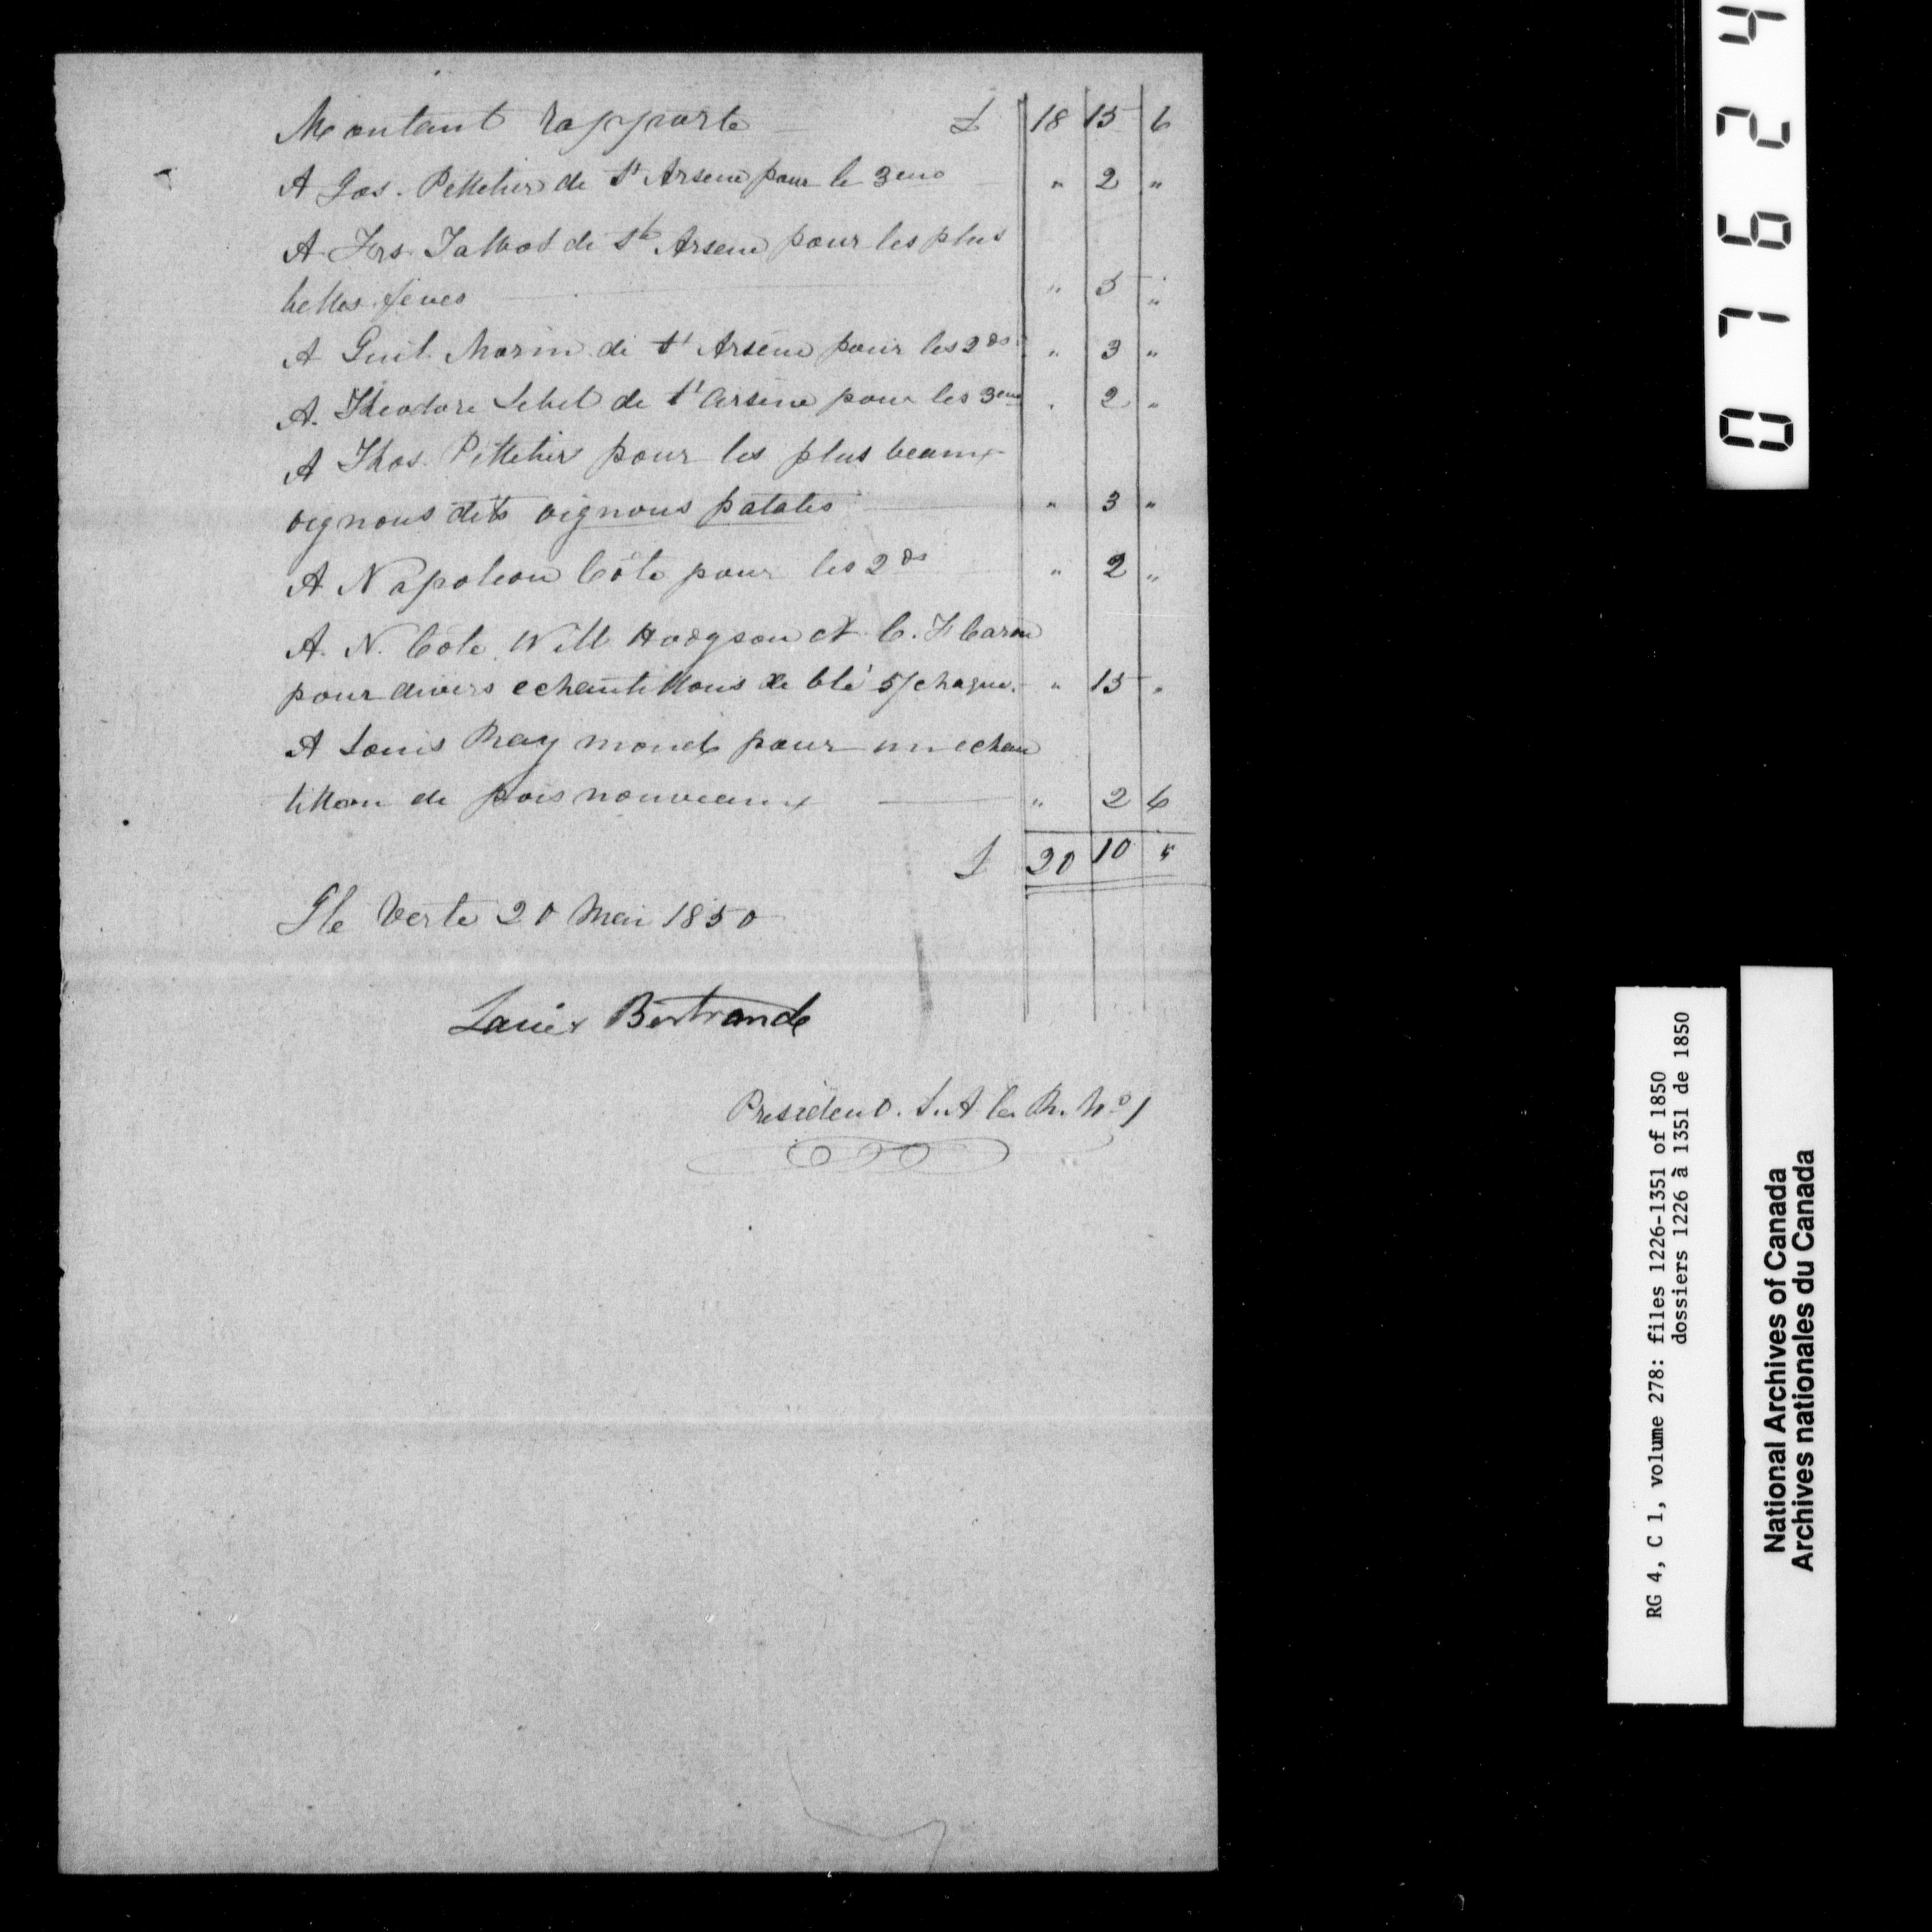 Montant rapporté £ 18 15 6
A Jos. Pelletier de St Arsene pour le 3eme " 2 "
A Frs. Talbot de St Arsene pour les plus
belles feves " 5 "
A Guil. Morin de St Arsene pour les 2ds " 3 "
A. Théodore Lebel de St Arsene pour les 3eme " 2 "
A Thos. Pelletier pour les plus beaux
oignons dits oignons patates " 3 "
A Napoleon Côté pour les 2ds " 2 "
A. N. Côté, Will Hodgson et C. F. Caron
pour divers echantillons de blé 5/ chaque. " 15 "
A Louis Raymond pour un echan
tillon de pois nouveaux " 2 6
£ 20 10 "
Ile Verte 20 Mai 1850
Louis Bertrand
President. S. A. Co. R. No 1
07624
RG 4, C 1, volume 278: files 1226-1351 of 1850
dossiers 1226 à 1351 de 1850
National Archives of Canada
Archives nationales du Canada